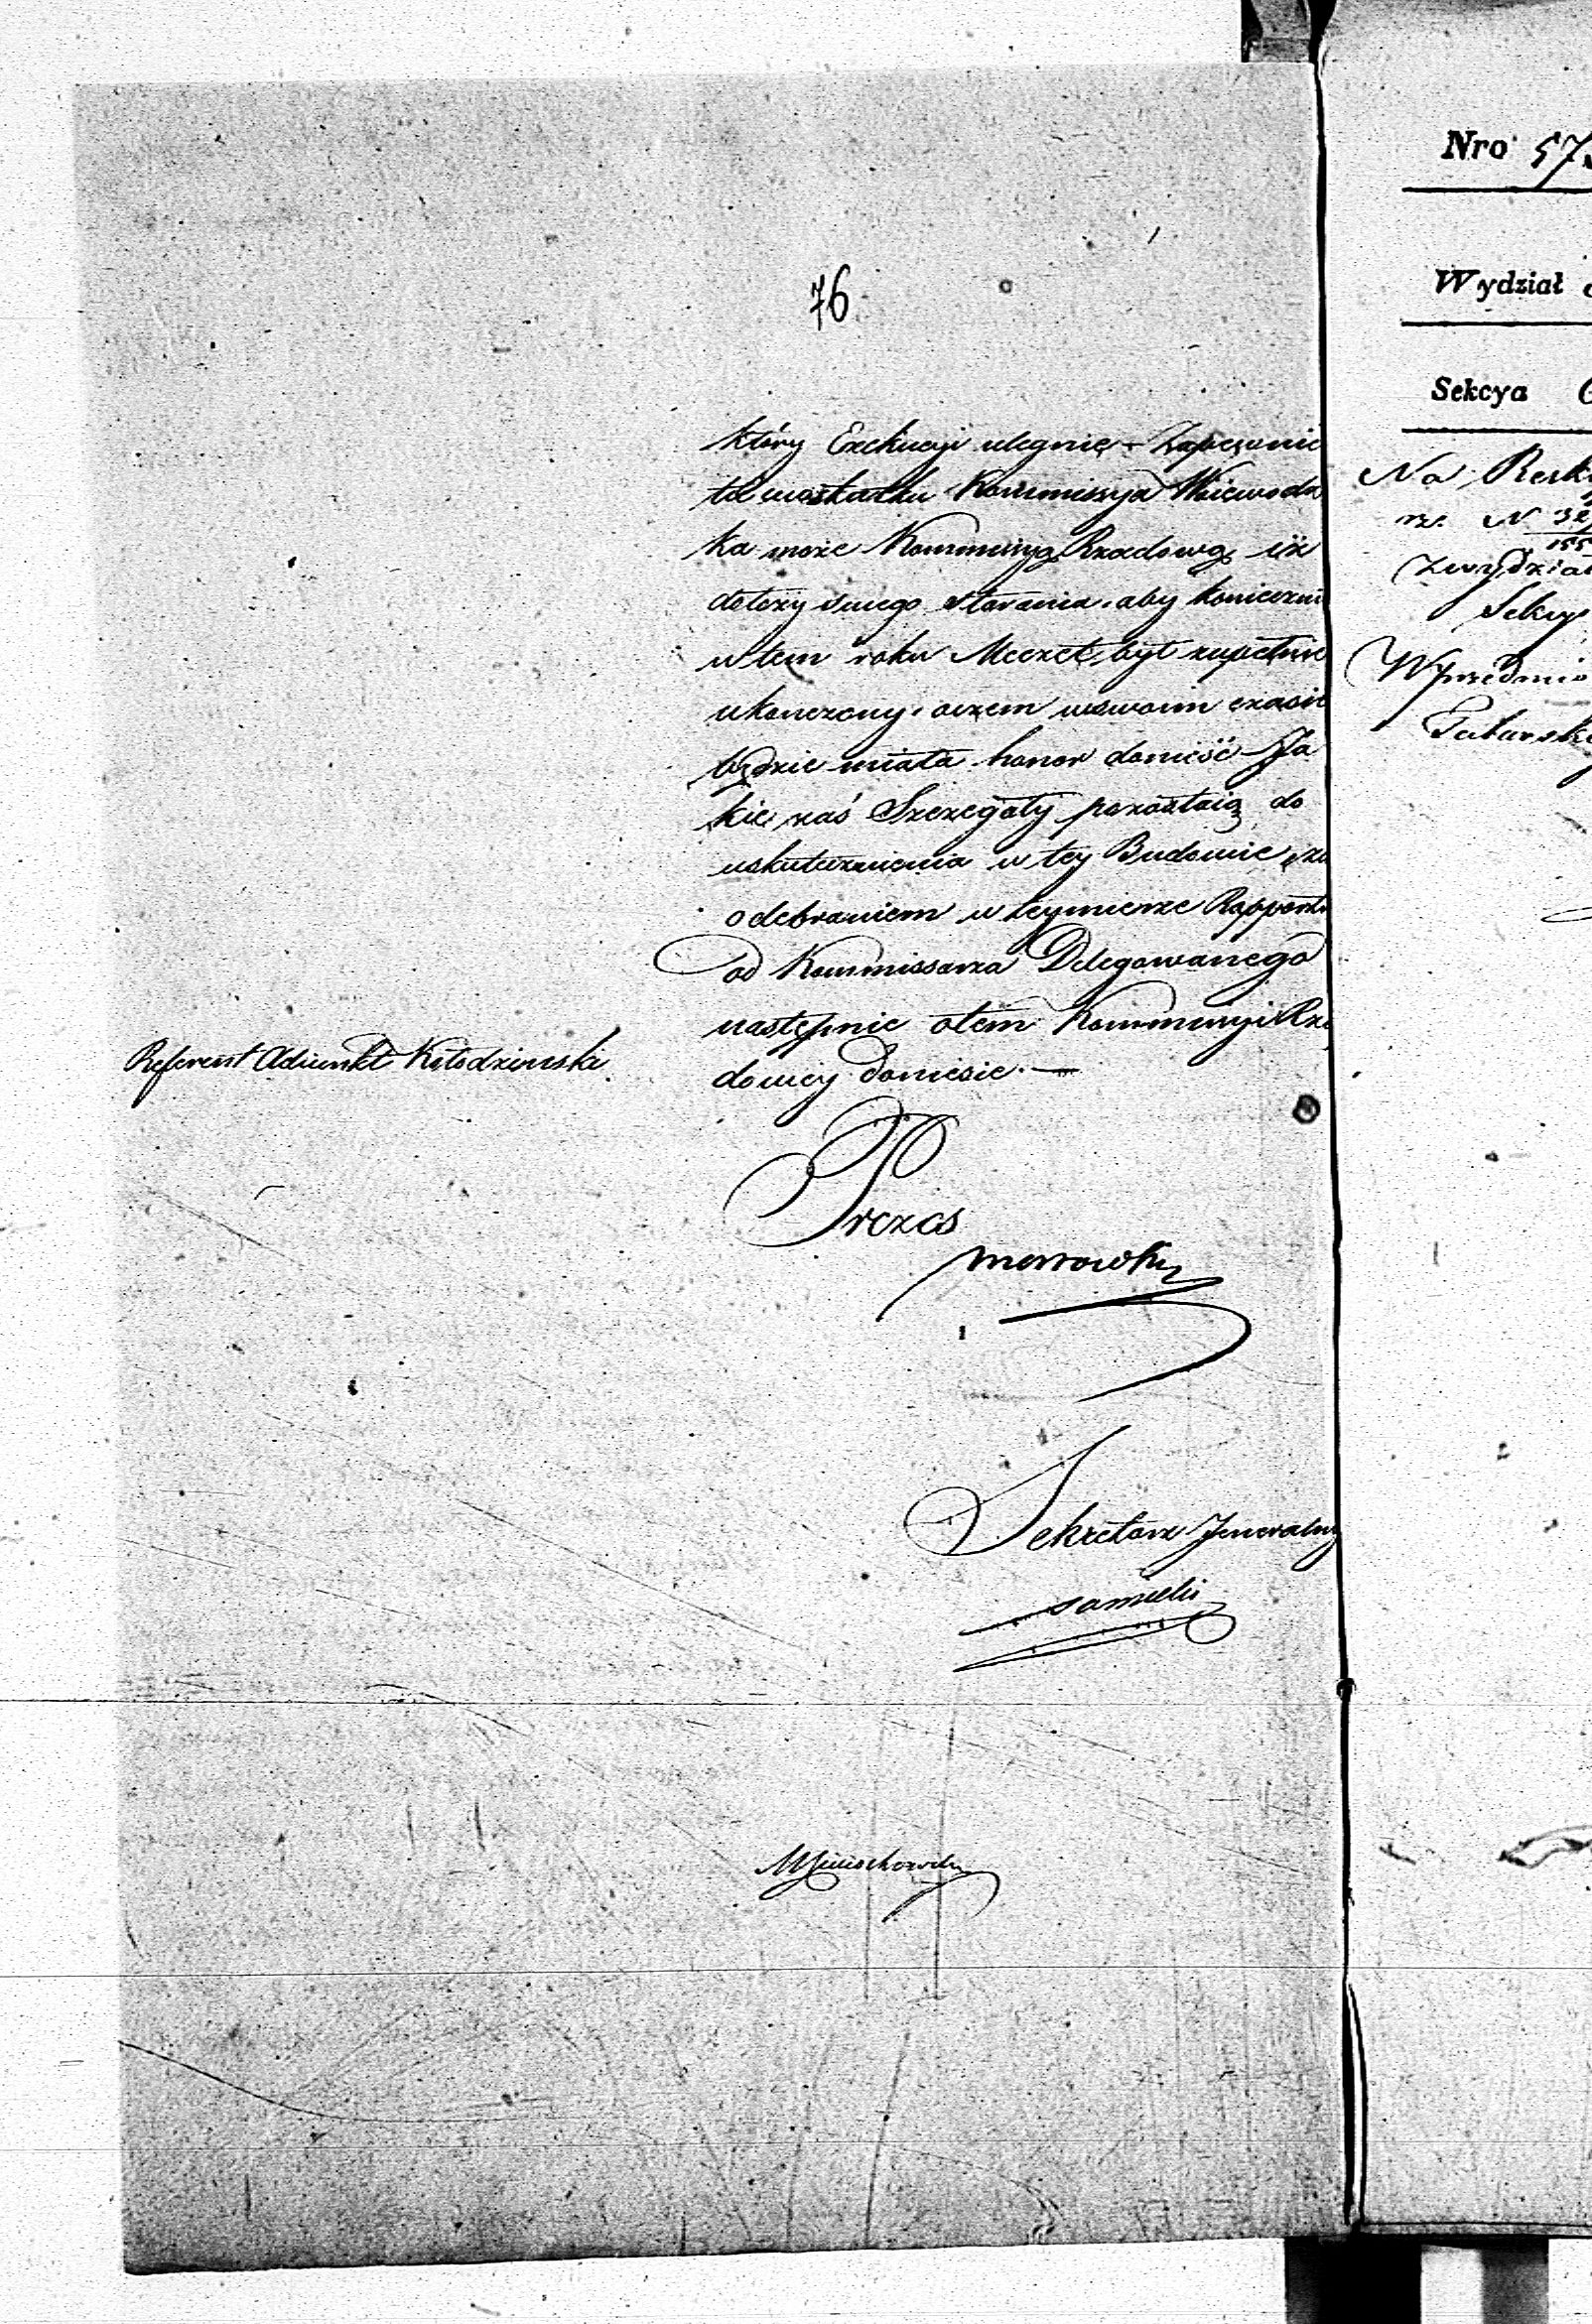 76
który Exekucyi ulegnie – Zapewnić
to wszakże Kommissya Wojewodz
ka może Kommissyą Rządową iż
dołoży swego starania, aby koniecznie
w tem roku Meczet był zupełnie
ukończony, oczem wswoim czasie
będzie miała honor donieść – Ja
kie zaś Szczegóły pozostaią do
uskutecznienia w tey Budowie, za
odebraniem w teymierze Rapportu
od Kommissarza Delegowanego
następnie otem Kommissyi Rzą
dowey doniesie. —
Referent Adiunkt Kołodzinski
Prezes
Sekretarz Jeneralny
Nro 57
Wydział
Sekcya
Na Resk
N 32
155
Zwydział
Sekcyi
W przedmio
Tatarsk